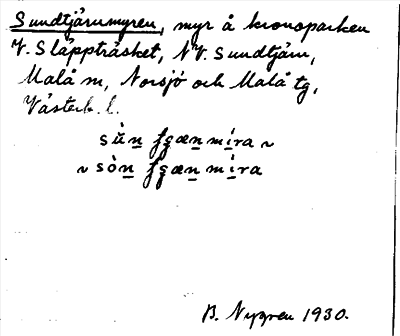 Sundtjärnmyren, myr å kronoparken
V. Släppträsket, NV. Sundtjärn,
Malå m, Norsjö och Malå tg,
Västerb. l.
sùn fgænmíra ~
~ sòn fgænmíra
B. Nygren 1930.